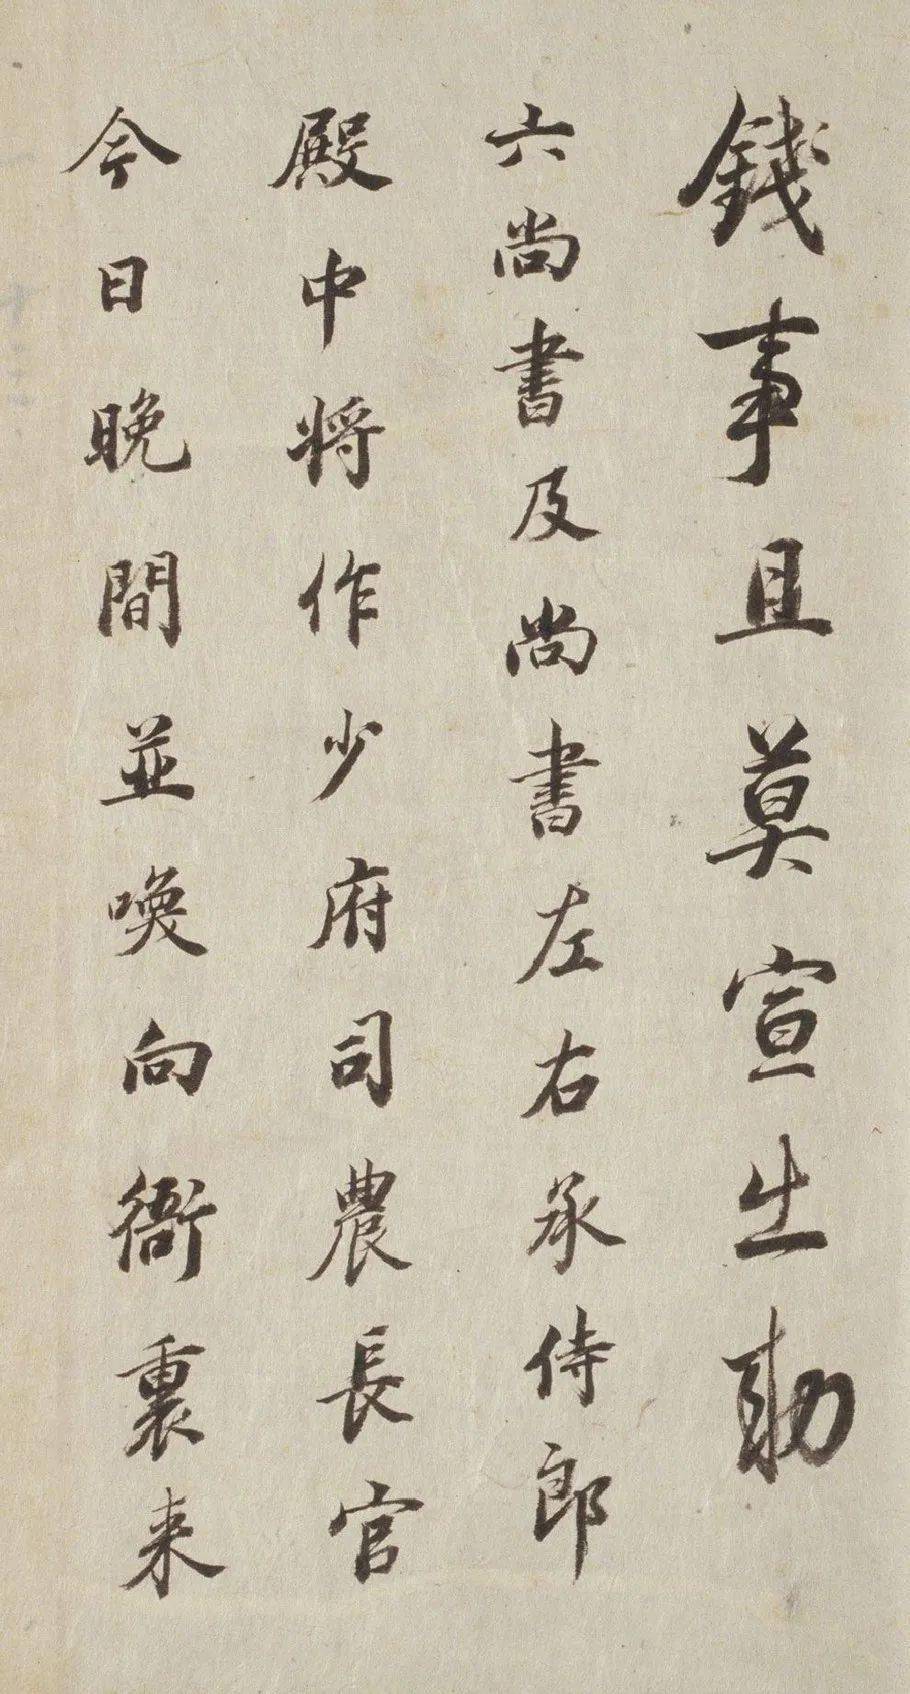 錢事且莫宣出勅
六尚書及尚書左右承侍郎
殿中將作少府司農長官
今日晚間並喚向衙裏来